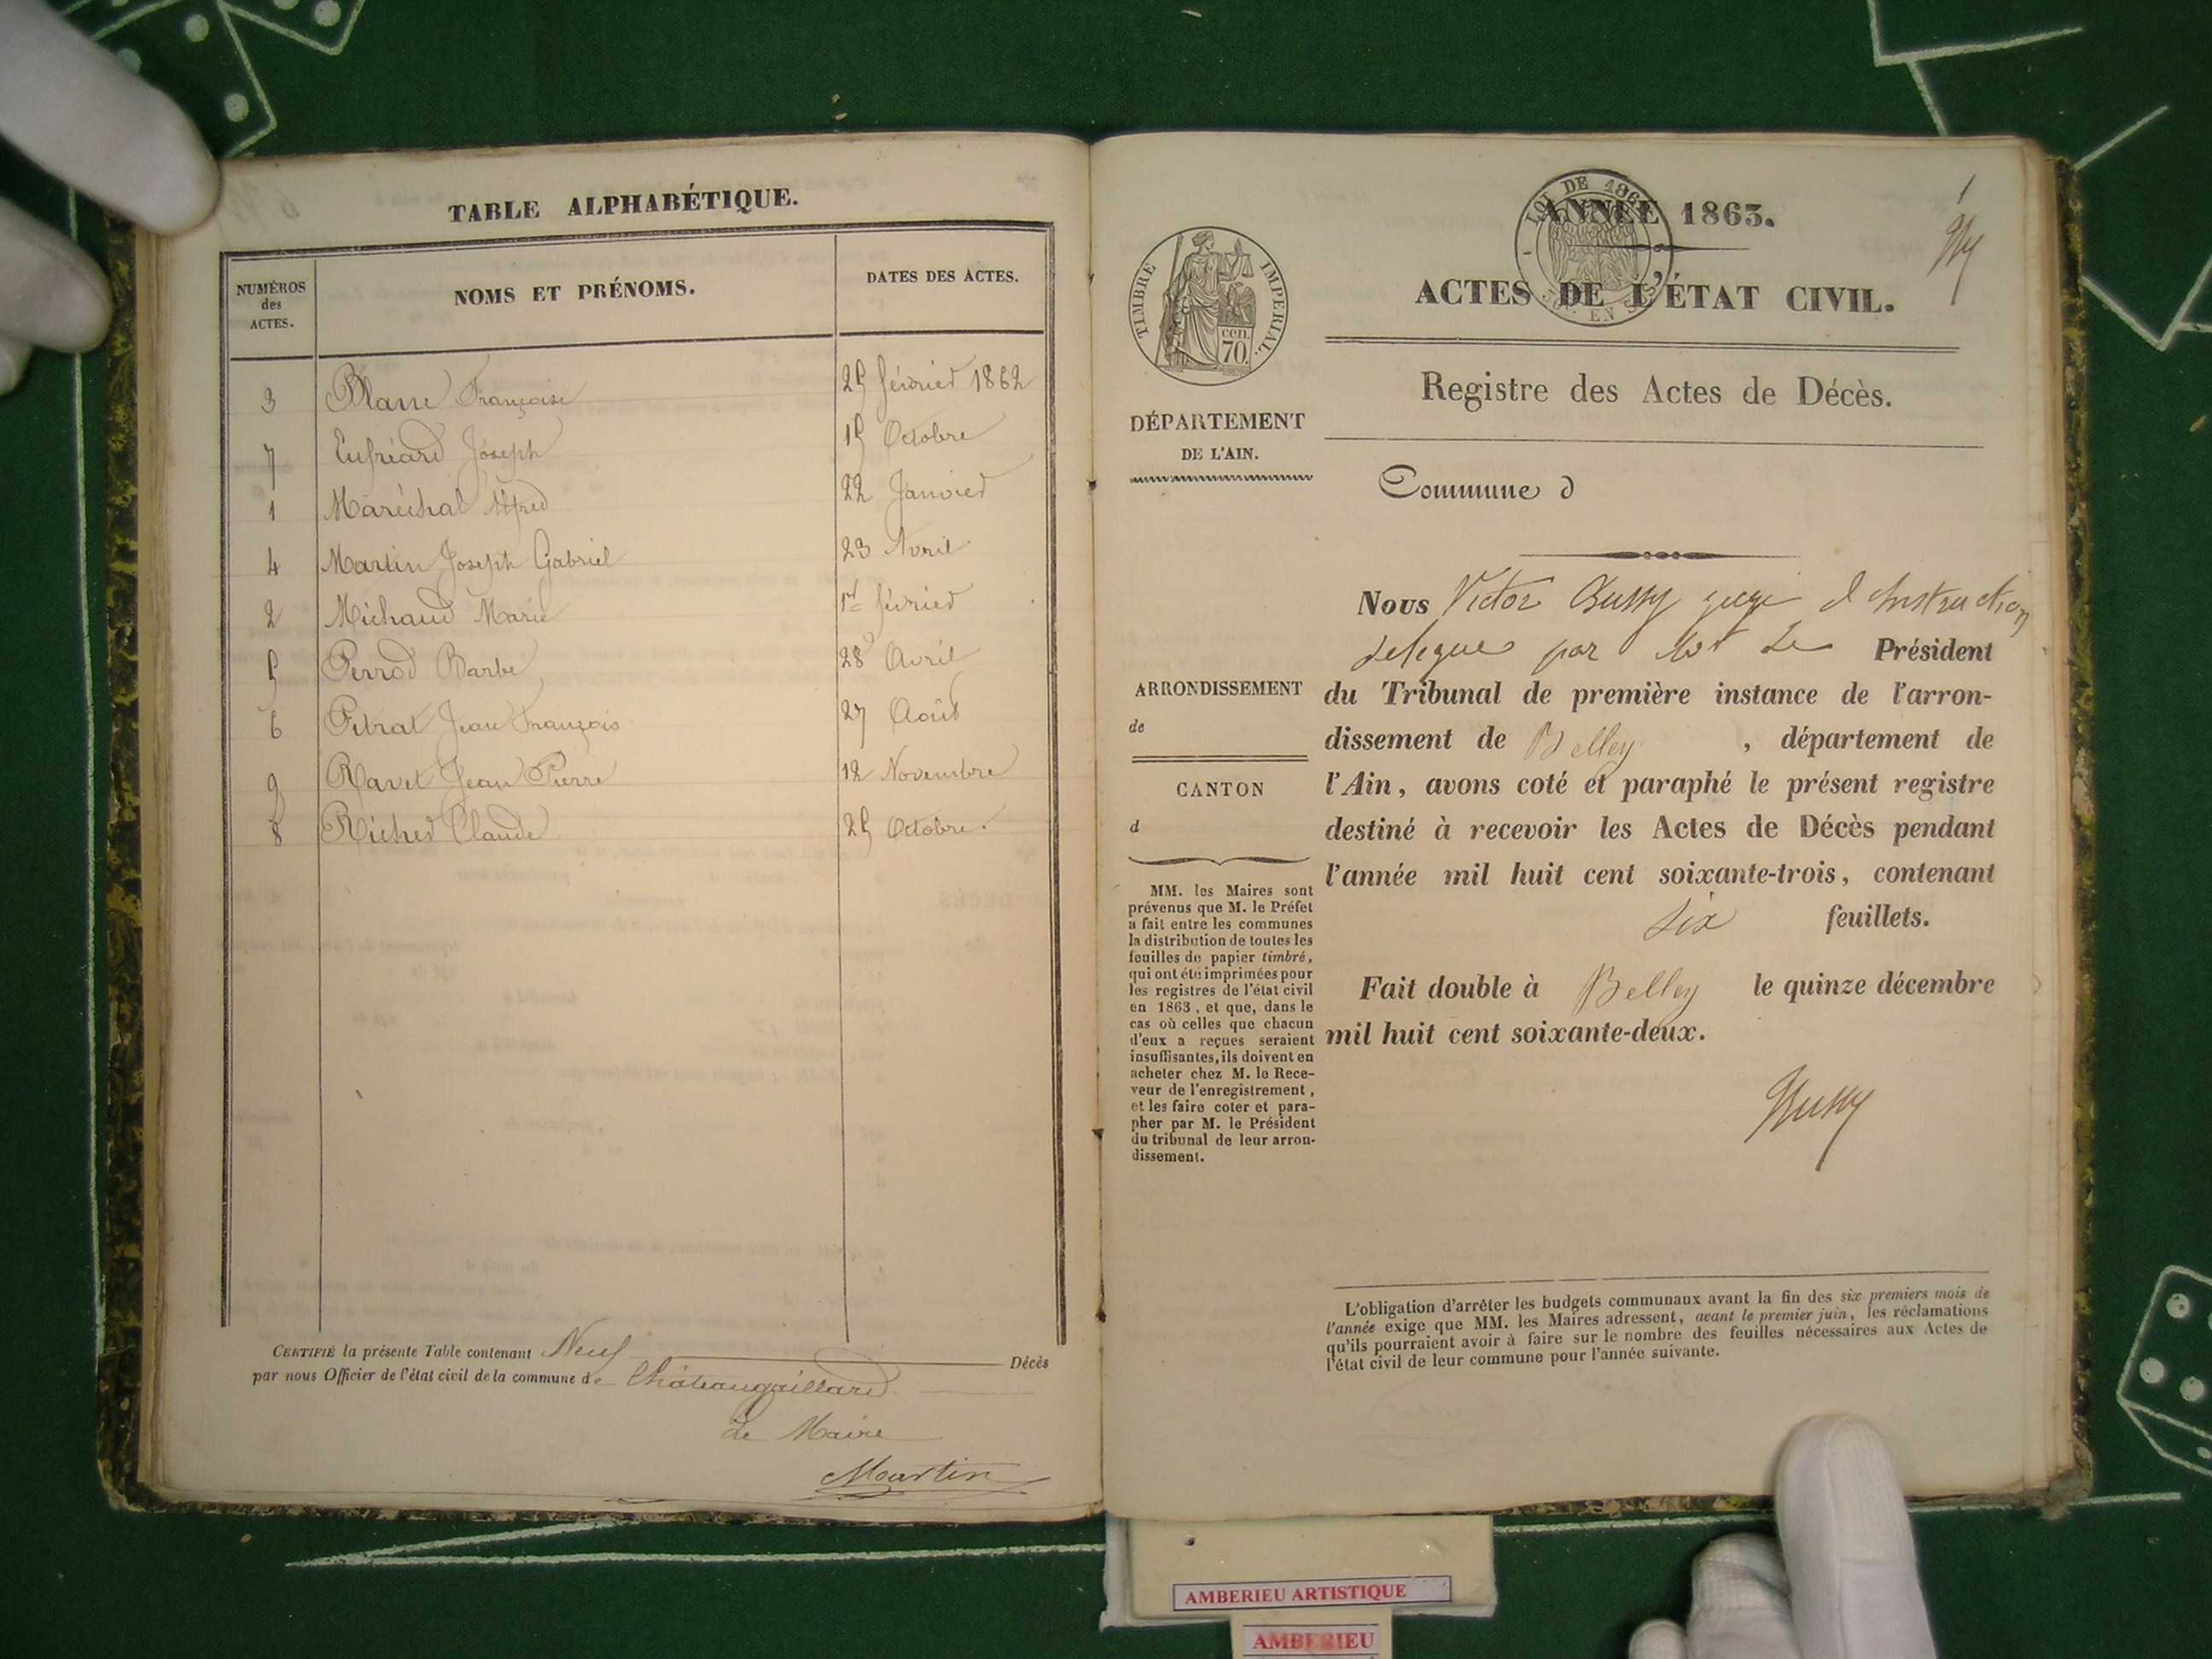 TABLE ALPHABÉTIQUE.
NUMÉROS des ACTES. NOMS ET PRÉNOMS. DATES DES ACTES.
3 Blanc Françoise 25 février 1862
7 Joseph 15 Octobre
1 Maréchal Alfred 22 Janvier
4 Martin Joseph Gabriel 23 Avril
2 Michaud Marie 1er février
5 Perrod Barbe 28 Avril
6 Jean François 27 Août
9 Ravet Jean Pierre 12 Novembre
8 Richer Claude 25 Octobre.
CERTIFIÉ la présente Table contenant Neuf Décès
par nous Officier de l'état civil de la commune de Châteaugaillard
Le Maire
Martin
1
LOI DE 186
EN
ANNÉE 1863.
ACTES DE L'ÉTAT CIVIL.
TIMBRE IMPÉRIAL.
cen.
70.
DÉPARTEMENT
DE L'AIN.
Registre des Actes de Décès.
Commune d
Nous Victor Bussy juge d'instruction
délégué par Mr Le Président
du Tribunal de première instance de l'arron-
dissement de Belley , département de
l'Ain, avons coté et paraphé le présent registre
destiné à recevoir les Actes de Décès pendant
l'année mil huit cent soixante-trois, contenant
six feuillets.
Fait double à Belley le quinze décembre
mil huit cent soixante-deux.
Bussy
ARRONDISSEMENT
de
CANTON
d
MM. les Maires sont
prévenus que M. le Préfet
a fait entre les communes
la distribution de toutes les
feuilles de papier timbré,
qui ont été imprimées pour
les registres de l'état civil
en 1863, et que, dans le
cas où celles que chacun
d'eux a reçues seraient
insuffisantes, ils doivent en
acheter chez M. le Rece-
veur de l'enregistrement,
et les faire coter et para-
pher par M. le Président
du tribunal de leur arron-
dissement.
L'obligation d'arrêter les budgets communaux avant la fin des six premiers mois de
l'année exige que MM. les Maires adressent, avant le premier juin, les réclamations
qu'ils pourraient avoir à faire sur le nombre des feuilles nécessaires aux Actes de
l'état civil de leur commune pour l'année suivante.
AMBERIEU ARTISTIQUE
AMBERIEU